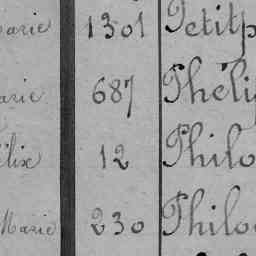 Marie 1301 Petitp
Marie 687 Phéli
Félix 12 Philo
Marie 230 Philo